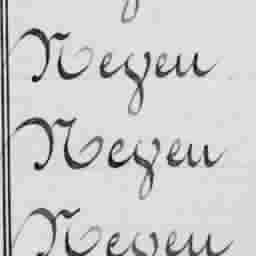 Neyen
Neyen
Neyen